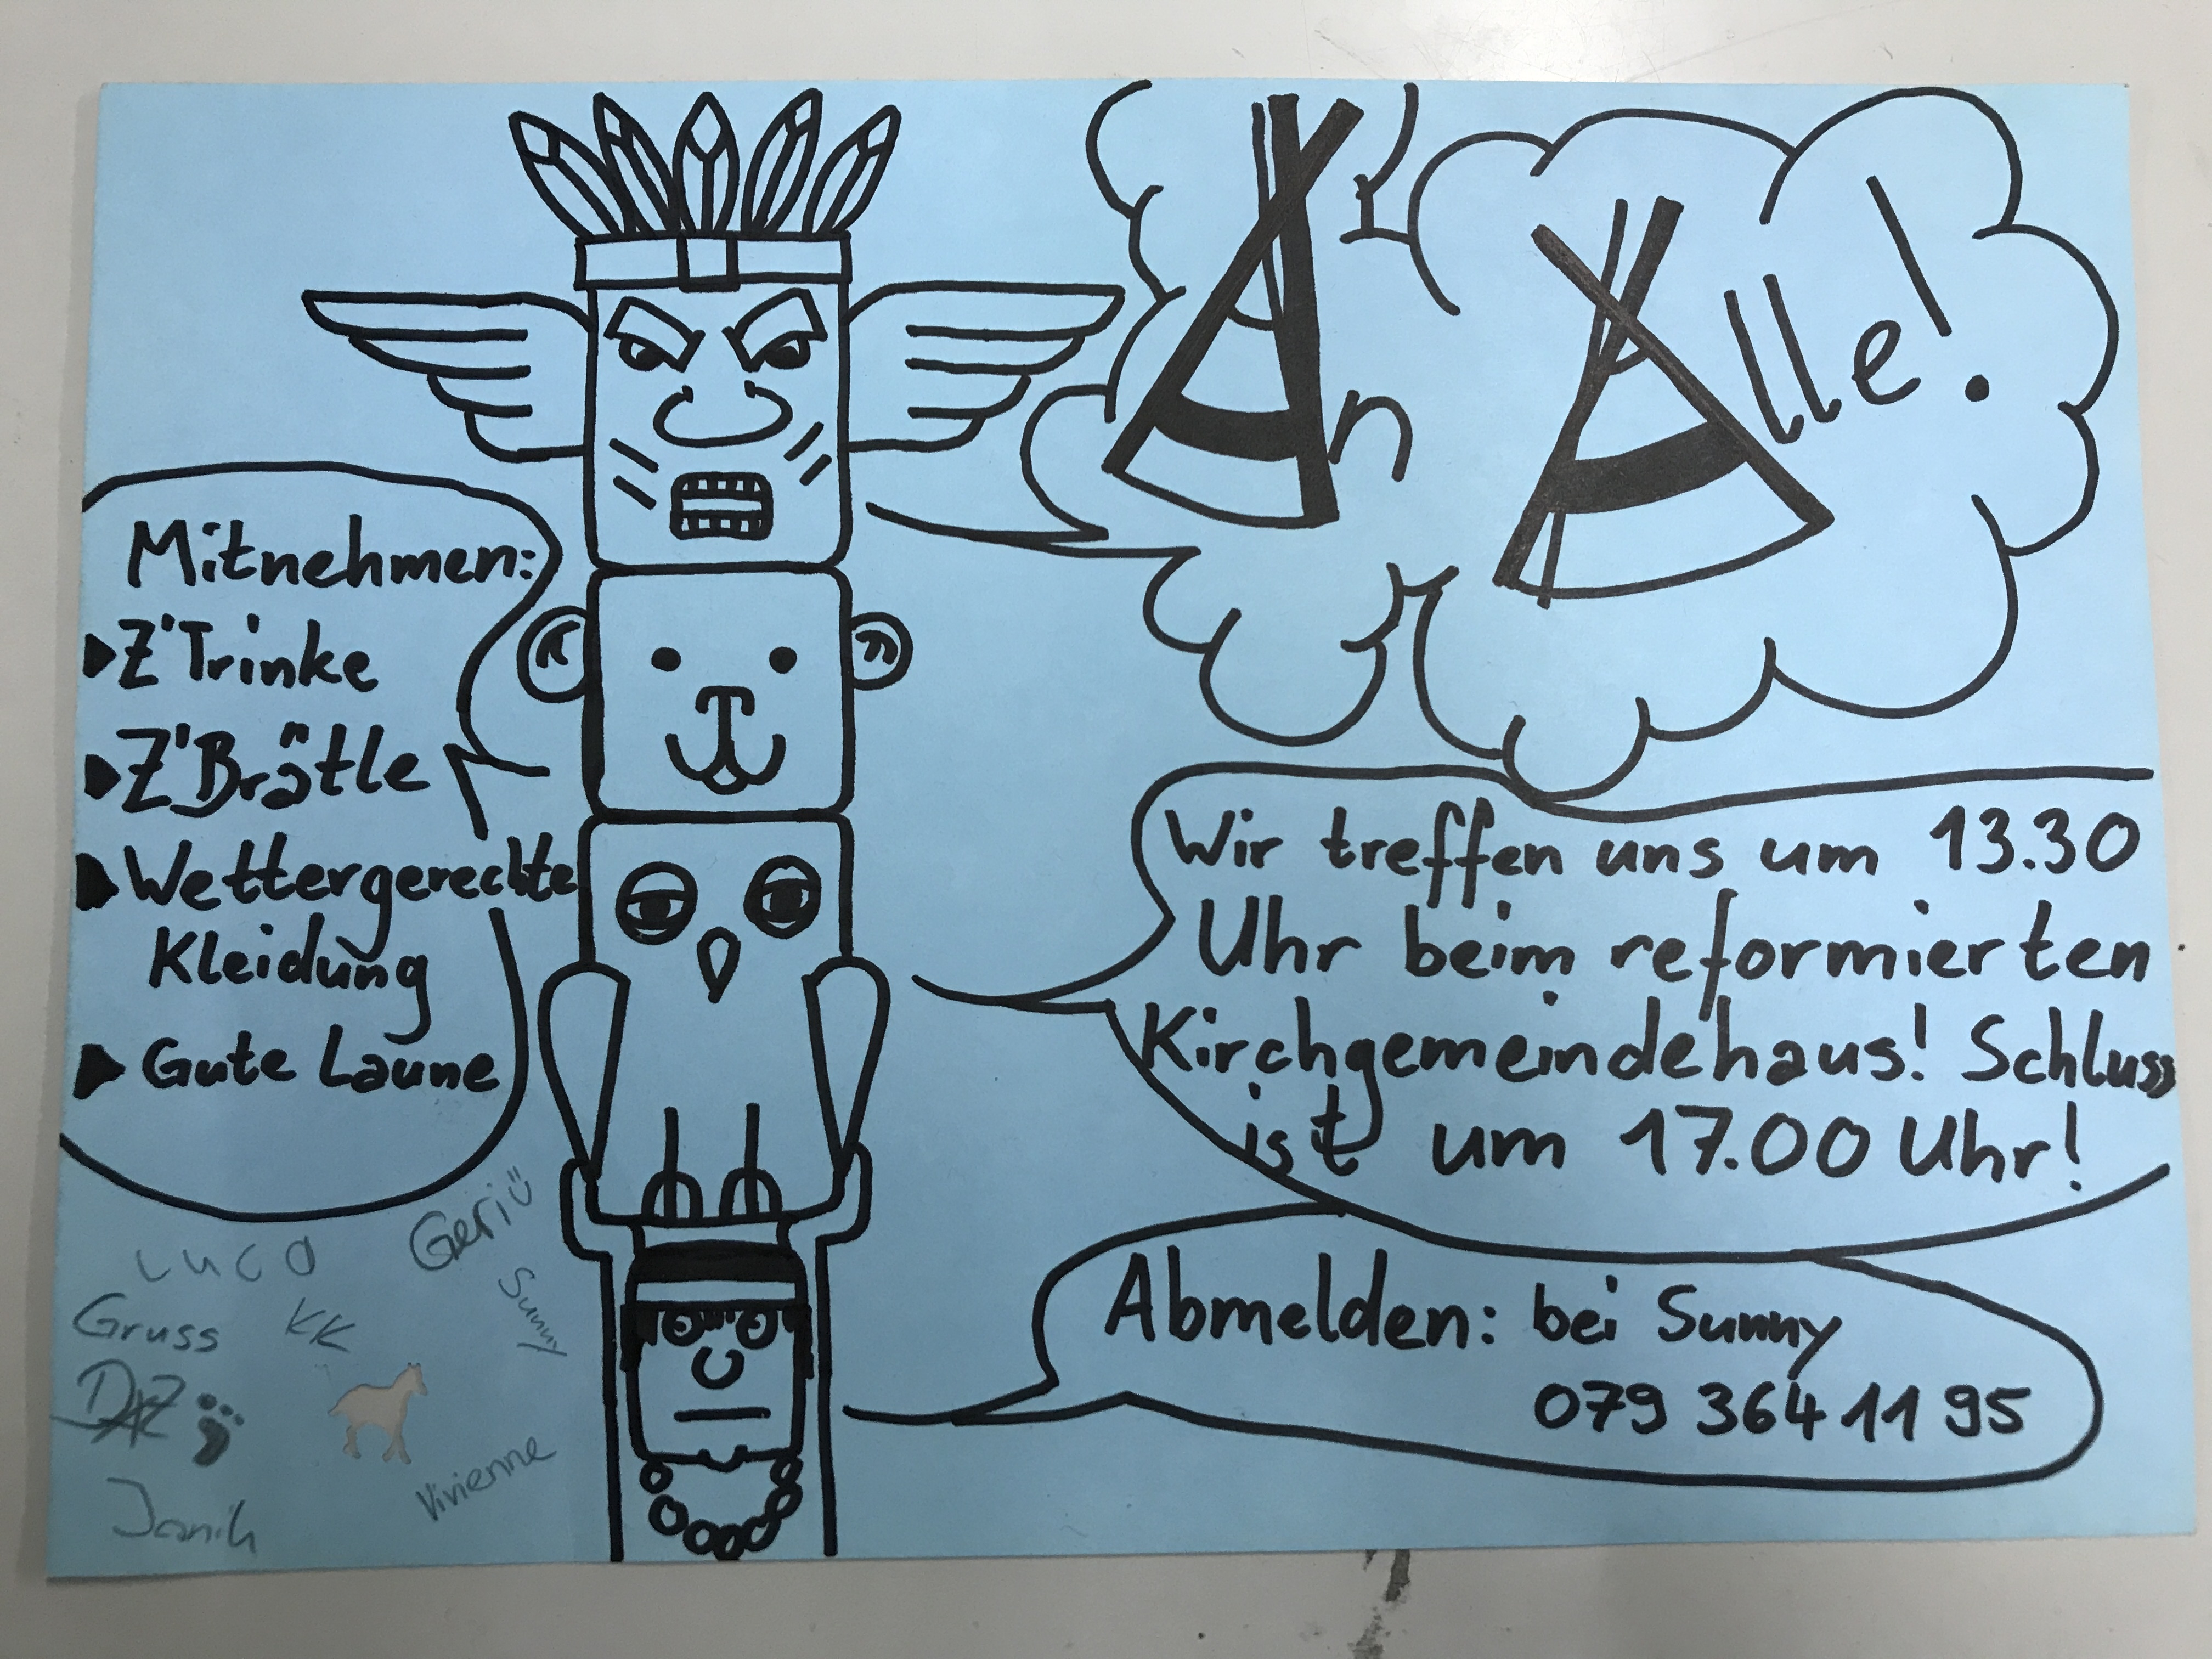 An Alle!
Mitnehmen:
Z'Trinke
Z'Brätle
Wettergerechte
Kleidung
Gute Laune
Wir treffen uns um 13.30
Uhr beim reformierten
Kirchgemeindehaus! Schluss
ist um 17.00 Uhr!
Abmelden: bei Sunny
079 364 11 95
Luca
Geri
Sunny
Gruss
KK
Vivienne
Janik